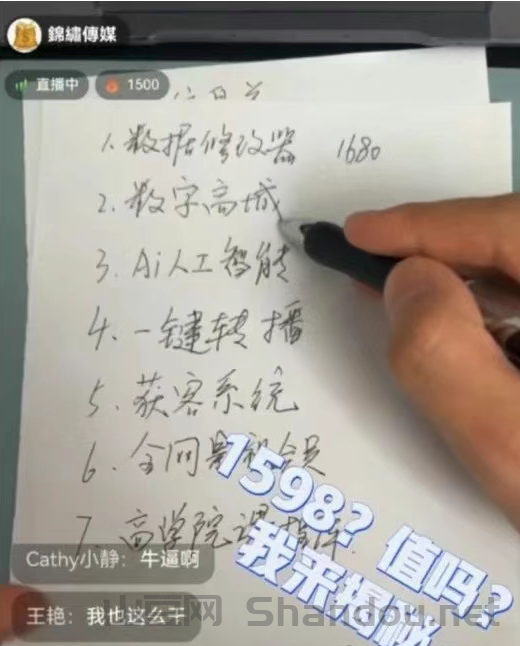 錦繡傳媒
直播中 1500
1. 数据修改器 1680
2. 数字高城
3. Ai人工智能
4. 一键转播
5. 获客系统
6. 全网影视会员
7. 高学院课
1598？值吗？
我来揭秘
Cathy小静：牛逼啊
王艳：我也这么干
Shandou.net